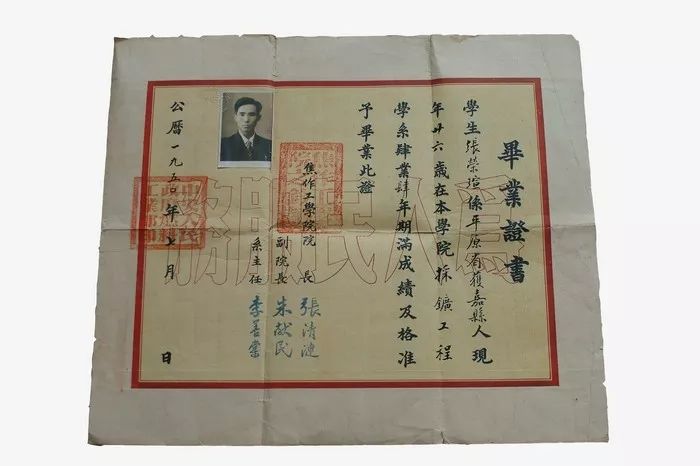 畢業證書
學生張榮瑄係平原省獲嘉縣人現
年廿六歲在本學院採鑛工程
學系肄業肆年期滿成績及格准
予畢業此證
焦作工學院院長 張清漣
副院長 朱献民
系主任 李善棠
公曆一九五〇年七月 日
為人民服務